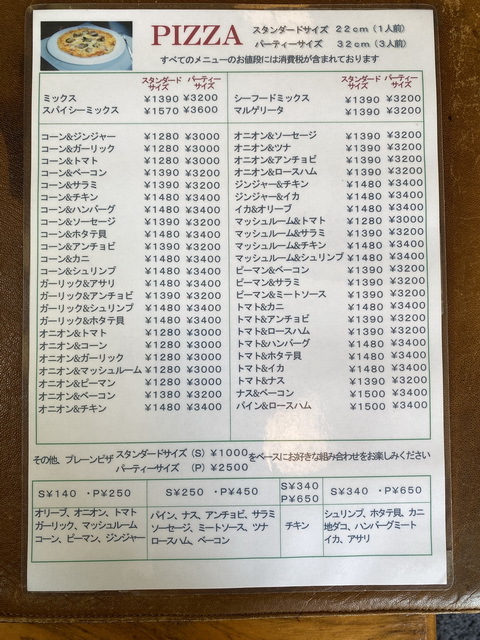 PIZZA スタンダードサイズ 22cm(1人前)
パーティーサイズ 32cm(3人前)
すべてのメニューのお値段には消費税が含まれております
スタンダードサイズ パーティーサイズ
ミックス ¥1390 ¥3200
スパイシーミックス ¥1570 ¥3600
コーン&ジンジャー ¥1280 ¥3000
コーン&ガーリック ¥1280 ¥3000
コーン&トマト ¥1280 ¥3000
コーン&ベーコン ¥1390 ¥3200
コーン&サラミ ¥1390 ¥3200
コーン&チキン ¥1480 ¥3400
コーン&ハンバーグ ¥1480 ¥3400
コーン&ソーセージ ¥1390 ¥3200
コーン&ホタテ貝 ¥1480 ¥3400
コーン&アンチョビ ¥1390 ¥3200
コーン&カニ ¥1480 ¥3400
コーン&シュリンプ ¥1480 ¥3400
ガーリック&アサリ ¥1480 ¥3400
ガーリック&アンチョビ ¥1390 ¥3200
ガーリック&シュリンプ ¥1480 ¥3400
ガーリック&ホタテ貝 ¥1480 ¥3400
オニオン&トマト ¥1280 ¥3000
オニオン&コーン ¥1280 ¥3000
オニオン&ガーリック ¥1280 ¥3000
オニオン&マッシュルーム ¥1280 ¥3000
オニオン&ピーマン ¥1280 ¥3000
オニオン&ベーコン ¥1380 ¥3200
オニオン&チキン ¥1480 ¥3400
スタンダードサイズ パーティーサイズ
シーフードミックス ¥1390 ¥3200
マルゲリータ ¥1390 ¥3200
オニオン&ソーセージ ¥1390 ¥3200
オニオン&ツナ ¥1390 ¥3200
オニオン&アンチョビ ¥1390 ¥3200
オニオン&ロースハム ¥1390 ¥3200
ジンジャー&チキン ¥1480 ¥3400
ジンジャー&イカ ¥1480 ¥3400
イカ&オリーブ ¥1480 ¥3400
マッシュルーム&トマト ¥1280 ¥3000
マッシュルーム&サラミ ¥1390 ¥3200
マッシュルーム&チキン ¥1480 ¥3400
マッシュルーム&シュリンプ ¥1480 ¥3400
ピーマン&ベーコン ¥1390 ¥3200
ピーマン&サラミ ¥1390 ¥3200
ピーマン&ミートソース ¥1390 ¥3200
トマト&カニ ¥1480 ¥3400
トマト&アンチョビ ¥1390 ¥3200
トマト&ロースハム ¥1390 ¥3200
トマト&ハンバーグ ¥1480 ¥3400
トマト&ホタテ貝 ¥1480 ¥3400
トマト&イカ ¥1480 ¥3400
トマト&ナス ¥1390 ¥3200
ナス&ベーコン ¥1500 ¥3400
パイン&ロースハム ¥1500 ¥3400
その他、プレーンピザ スタンダードサイズ(S) ¥1000 をベースにお好きな組み合わせをお楽しみください
パーティーサイズ (P) ¥2500
S¥140・P¥250
オリーブ、オニオン、トマト
ガーリック、マッシュルーム
コーン、ピーマン、ジンジャー
S¥250・P¥450
パイン、ナス、アンチョビ、サラミ
ソーセージ、ミートソース、ツナ
ロースハム、ベーコン
S¥340
P¥650
チキン
S¥340・P¥650
シュリンプ、ホタテ貝、カニ
地ダコ、ハンバーグミート
イカ、アサリ